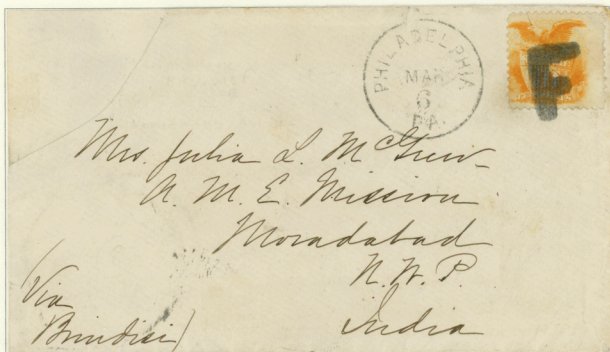 PHILADELPHIA
MAR
6
PA.
F
Mrs. Julia L. McGrew
A. M. E. Mission
Moradabad
N. W. P.
India
(Via
Brindisi)